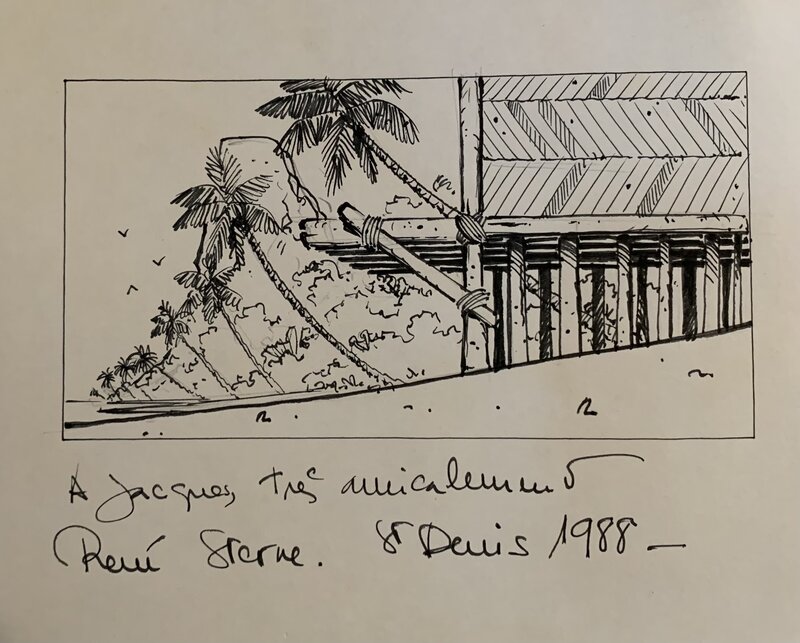 A Jacques, très amicalement
René Sterne. St Denis 1988 —